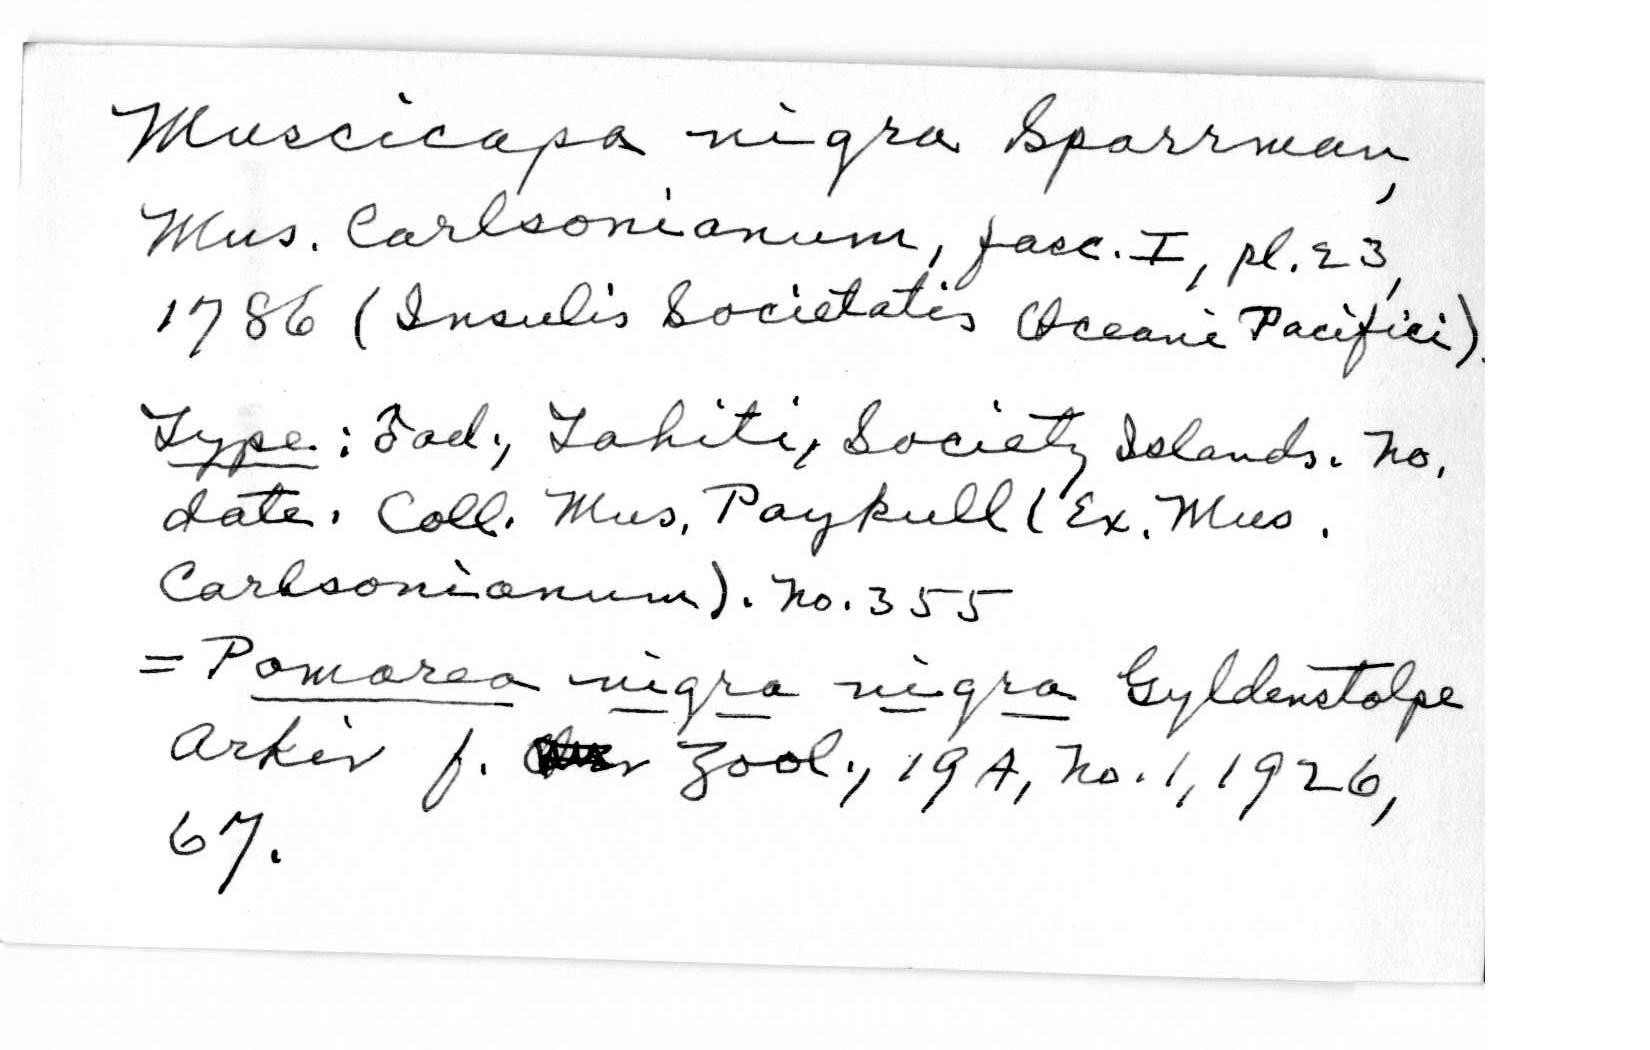 Muscicapa nigra Sparrman,
Mus. Carlsonianum, fasc. I, pl. 23,
1786 (Insulis Societatis Oceani Pacifici).
Type: ad., Tahiti, Society Islands. No.
date. Coll. Mus. Paykull (Ex. Mus.
Carlsonianum). No. 355
= Pomarea nigra nigra Gyldenstolpe
Arkiv f. Zool., 19A, No. 1, 1926,
67.